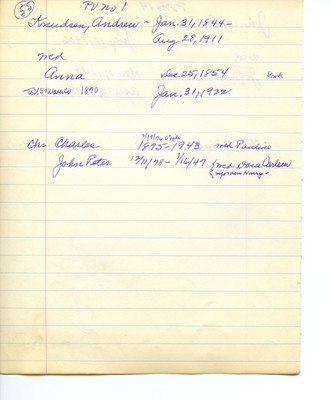 59 PV no 1
Knudsen, Andrew - Jan. 31, 1844 -
Aug 28, 1911
med
Anna Dec 25, 1854
1870 Jan. 31, 1922
Chr Charles 1875-1943 med Pauline
John Peter 12/11/78 - 1/16/47 med Dora Carlsen
son Harry